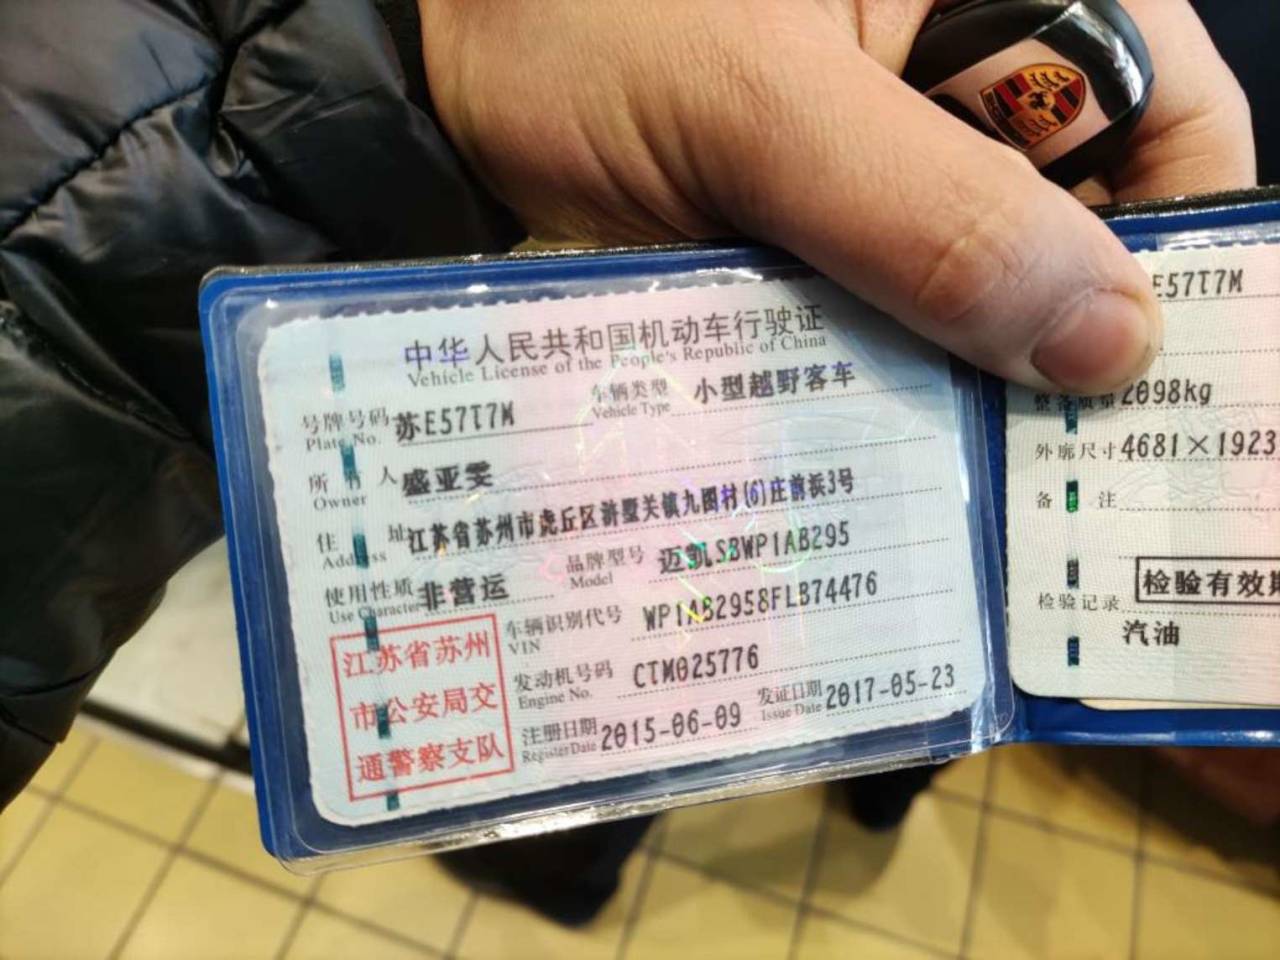 中华人民共和国机动车行驶证
Vehicle License of the People's Republic of China
号牌号码 苏E57T7M 车辆类型 小型越野客车
Plate No. Vehicle Type
所有人 盛亚雯
Owner
住址 江苏省苏州市虎丘区浒墅关镇九图村(6)庄前浜3号
Address
使用性质 非营运 品牌型号 迈凯SBWP1AB295
Use Character Model
车辆识别代号 WP1AB2958FLB74476
VIN
发动机号码 CTM025776
Engine No.
注册日期 2015-06-09 发证日期 2017-05-23
Register Date Issue Date
江苏省苏州
市公安局交
通警察支队
E57T7M
整备质量 2098kg
外廓尺寸 4681×1923
备注
检验有效期
检验记录
汽油